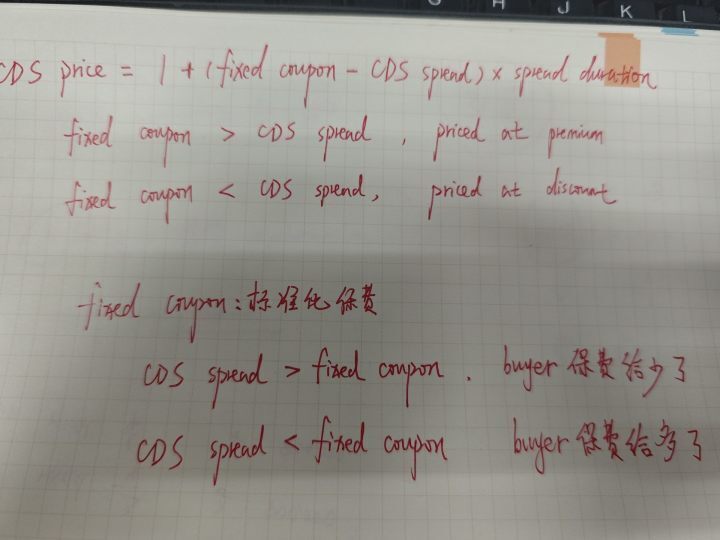 H J K L
CDS price = 1 + (fixed coupon - CDS spread) × spread duration
fixed coupon > CDS spread , priced at premium
fixed coupon < CDS spread, priced at discount
fixed coupon: 标准化保费
CDS spread > fixed coupon . buyer 保费给少了
CDS spread < fixed coupon buyer 保费给多了